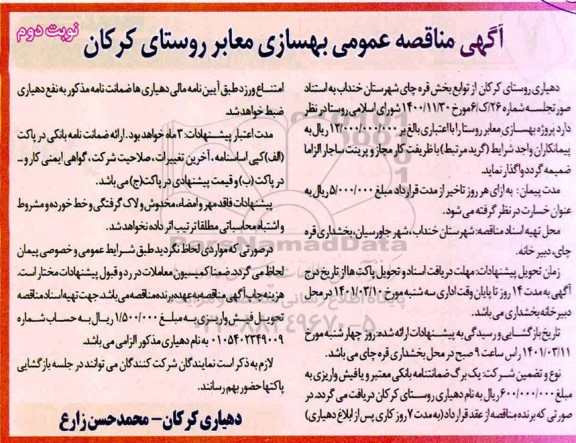 آگهی مناقصه عمومی بهسازی معابر روستای کرکان
نوبت دوم
دهیاری روستای کرکان از توابع بخش قره چای شهرستان خنداب به استناد
صورتجلسه شماره ۲۶/ک/۶ مورخ ۱۴۰۰/۱۱/۳۰ شورای اسلامی روستا در نظر
دارد پروژه بهسازی معابر روستا را با اعتباری بالغ بر ۱۲/۰۰۰/۰۰۰/۰۰۰ ریال به
پیمانکاران واجد شرایط (گرید مرتبط) با ظرفیت کار مجاز و پرینت ساجار الزاما
ضمیمه گردد واگذار نماید.
مدت پیمان: به ازای هر روز تاخیر از مدت قرارداد مبلغ ۵/۰۰۰/۰۰۰ ریال به
عنوان خسارت در نظر گرفته می شود.
محل تهیه اسناد مناقصه: شهرستان خنداب، شهر جاورسیان، بخشداری قره
چای، دبیرخانه.
زمان تحویل پیشنهادات: مهلت دریافت اسناد و تحویل پاکت ها از تاریخ درج
آگهی به مدت ۱۴ روز تا پایان وقت اداری سه شنبه مورخ ۱۴۰۱/۰۳/۱۰ در محل
دبیرخانه بخشداری می باشد.
تاریخ بازگشایی و رسیدگی به پیشنهادات ارائه شده: روز چهارشنبه مورخ
۱۴۰۱/۰۳/۱۱ راس ساعت ۹ صبح در محل بخشداری قره چای می باشد.
نوع و تضمین شرکت: یک برگ ضمانتنامه بانکی معتبر و یا فیش واریزی به
مبلغ ۶۰۰/۰۰۰/۰۰۰ ریال به نام دهیاری روستای کرکان دریافت می گردد. در
صورتی که برنده مناقصه از عقد قرارداد (به مدت ۷ روز کاری پس از ابلاغ دهیاری)
امتناع ورزد طبق آیین نامه مالی دهیاری ها ضمانت نامه مذکور به نفع دهیاری
ضبط خواهد شد.
مدت اعتبار پیشنهادات: ۳ ماه خواهد بود. ارائه ضمانت نامه بانکی در پاکت
(الف) کپی اساسنامه، آخرین تغییرات، صلاحیت شرکت، گواهی ایمنی کار و...
در پاکت (ب) و قیمت پیشنهادی در پاکت (ج) می باشد.
پیشنهادات فاقد مهر و امضاء، مخدوش و لاک گرفتگی و خط خورده و مشروط
و اشتباه محاسباتی مطلقا ترتیب اثر داده نخواهد شد.
در صورتی که مواردی لحاظ نگردید طبق شرایط عمومی و خصوصی پیمان
لحاظ می گردد. ضمنا کمیسیون معاملات در رد و قبول پیشنهادات مختار است.
هزینه چاپ آگهی مناقصه به عهده برنده مناقصه می باشد جهت تهیه اسناد مناقصه
تحویل فیش واریزی به مبلغ ۱/۵۰۰/۰۰۰ ریال به حساب شماره
۰۱۰۵۴۰۲۳۴۹۰۰۹ به نام دهیاری مذکور الزامی می باشد.
لازم به ذکر است نمایندگان شرکت کنندگان می توانند در جلسه بازگشایی
پاکتها حضور بهم رسانند.
دهیاری کرکان - محمدحسن زارع
ParsNamadData
۰۲۱-۸۸۳۴۹۶۷۰-۵